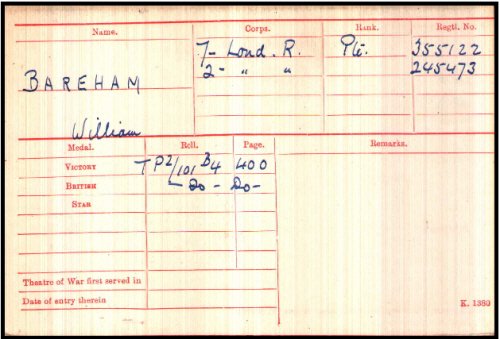 Name. Corps. Rank. Regtl. No.
7 - Lond. R. Pte. 355122
BAREHAM 2 - " " 245473
William
Medal. Roll. Page. Remarks.
VICTORY TP2/101 B4 400
BRITISH - Do - Do -
STAR
Theatre of War first served in
Date of entry therein
K. 1380